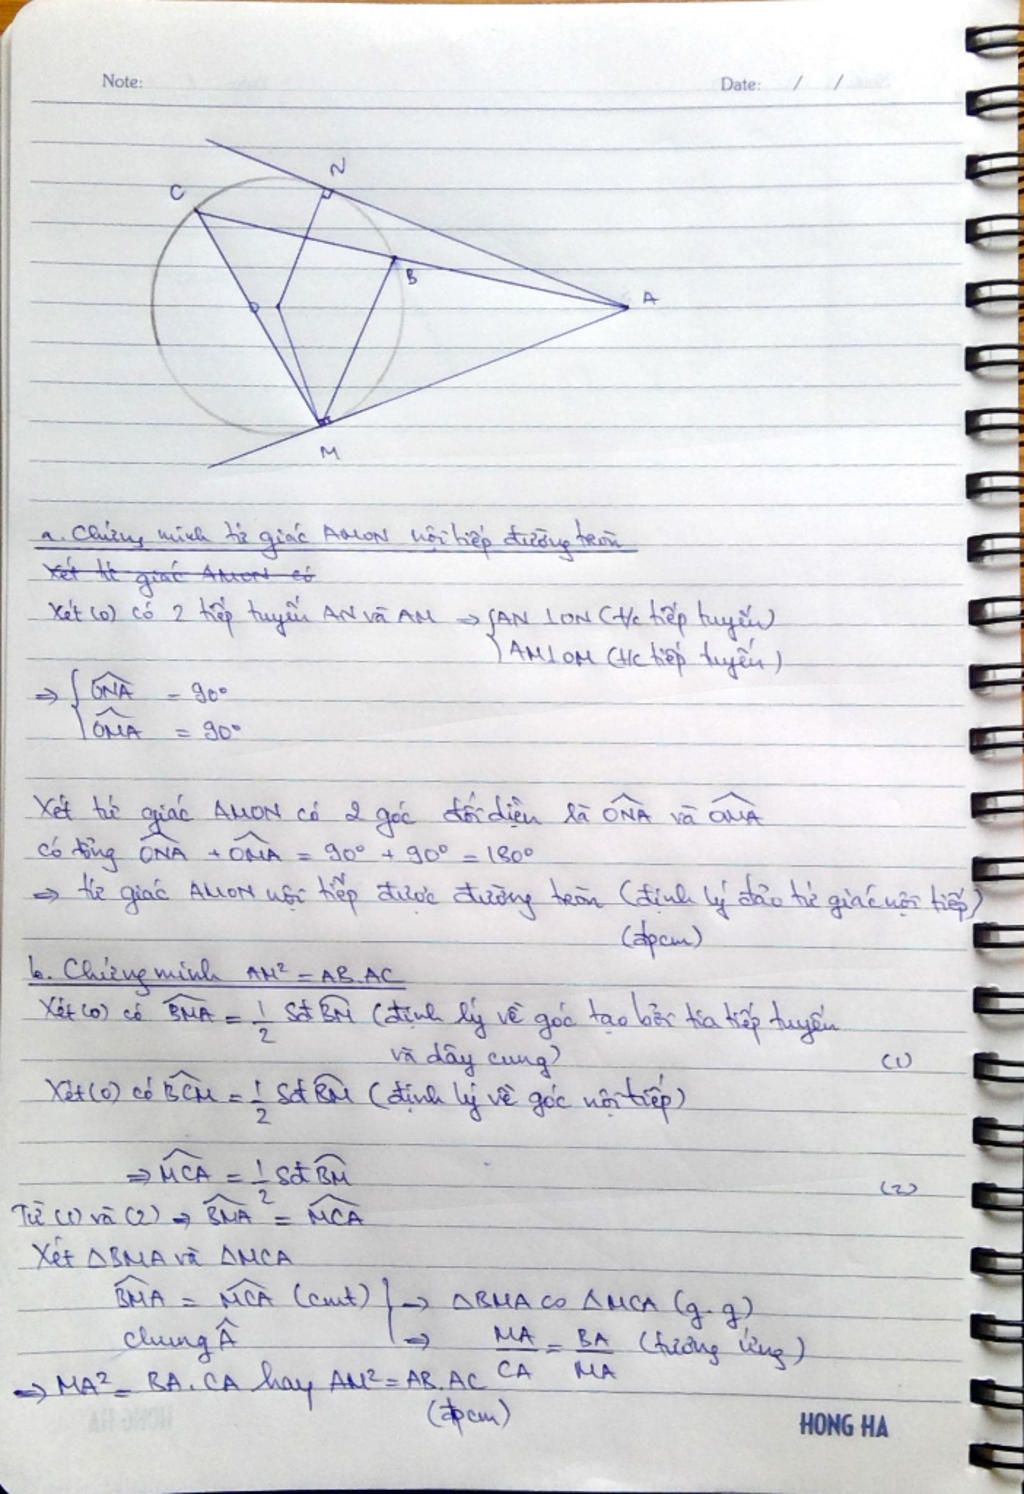 Note:
Date: / /
N
C
B
A
M
a. Chứng minh tứ giác AMON nội tiếp đường tròn
Xét tứ giác AMON có
Xét (O) có 2 tiếp tuyến AN và AM ⇒ { AN ⊥ ON (t/c tiếp tuyến)
AM ⊥ OM (t/c tiếp tuyến)
⇒ { ONA = 90°
OMA = 90°
Xét tứ giác AMON có 2 góc đối diện là ONA và OMA
có tổng ONA + OMA = 90° + 90° = 180°
⇒ tứ giác AMON nội tiếp được đường tròn (định lý đảo tứ giác nội tiếp)
(đpcm)
b. Chứng minh AM² = AB.AC
Xét (O) có BMA = 1/2 Sđ BM (định lý về góc tạo bởi tia tiếp tuyến
và dây cung) (1)
Xét (O) có BCM = 1/2 Sđ BM (định lý về góc nội tiếp)
⇒ MCA = 1/2 Sđ BM (2)
Từ (1) và (2) ⇒ BMA = MCA
Xét ΔBMA và ΔMCA
BMA = MCA (cmt) } ⇒ ΔBMA ∽ ΔMCA (g.g)
chung Â ⇒ MA/CA = BA/MA (tương ứng)
⇒ MA² = BA.CA hay AM² = AB.AC
(đpcm)
HONG HA